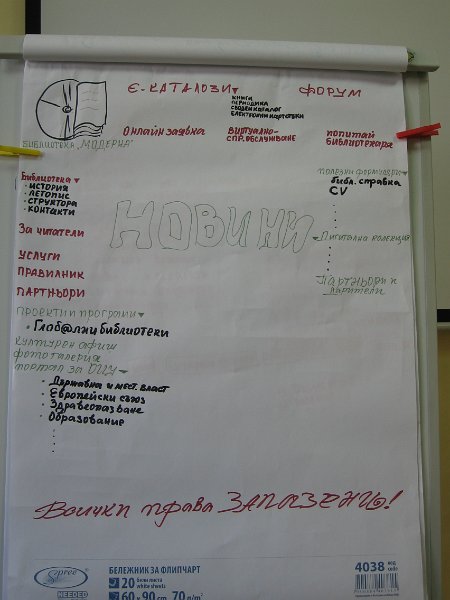 Е-КАТАЛОЗИ
ФОРУМ
КНИГИ
ПЕРИОДИКА
СВОДЕН КАТАЛОГ
ЕЛЕКТРОННИ КАРТОТЕКИ
ОНЛАЙН ЗАЯВКА
ВИРТУАЛНО-
СПР. ОБСЛУЖВАНЕ
ПОПИТАЙ
БИБЛИОТЕКАРЯ
БИБЛИОТЕКА „МОДЕРНА"
Библиотека
• ИСТОРИЯ
• ЛЕТОПИС
• СТРУКТУРА
• КОНТАКТИ
ПОЛЕЗНИ ФОРМУЛЯРИ
библ. справка
CV
За читатели
НОВИНИ
ДИГИТАЛНА КОЛЕКЦИЯ
УСЛУГИ
ПРАВИЛНИК
ПАРТНЬОРИ
ПАРТНЬОРИ И
ДАРИТЕЛИ
ПРОЕКТИ И ПРОГРАМИ
• Глоб@лни библиотеки
КУЛТУРЕН АФИШ
ФОТОГАЛЕРИЯ
ПОРТАЛ ЗА ОИЦ
• Държавна и мест. власт
• Европейски съюз
• Здравеопазване
• Образование
Всички права ЗАПАЗЕНИ!
Spree
NEEDED
БЕЛЕЖНИК ЗА ФЛИПЧАРТ
20 бели листа
white sheets
60 x 90 cm 70 g/m²
4038 код
code